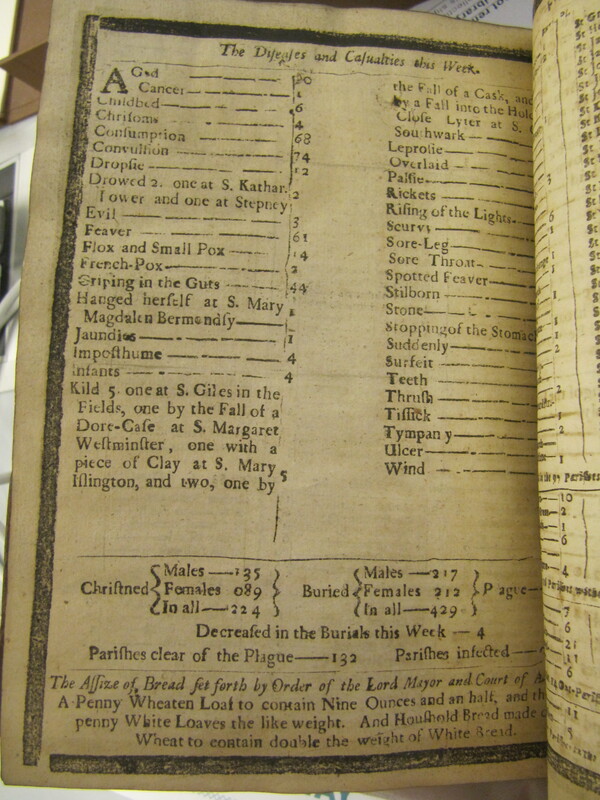 The Diseases and Casualties this Week.
AGed 20
Cancer 1
Childbed 6
Chrisoms 4
Consumption 68
Convulsion 74
Dropsie 12
Drowed 2. one at S. Kathar.
Tower and one at Stepney 2
Evil 3
Feaver 61
Flox and Small Pox 14
French-Pox 2
Griping in the Guts 44
Hanged herself at S. Mary
Magdalen Bermondsy 1
Jaundies 1
Imposthume 4
Infants 4
Kild 5. one at S. Giles in the
Fields, one by the Fall of a
Dore-Case at S. Margaret
Westminster, one with a
piece of Clay at S. Mary
Islington, and two, one by 5
the Fall of a Cask, and
by a Fall into the Hold
Close Lyter at S.
Southwark
Leprosie
Overlaid
Palsie
Rickets
Rising of the Lights
Scurvy
Sore-Leg
Sore Throat
Spotted Feaver
Stilborn
Stone
Stopping of the Stomac
Suddenly
Surfeit
Teeth
Thrush
Tissick
Tympany
Ulcer
Wind
Christned { Males — 135 } Buried { Males — 217 } Plague —
Females 089 Females 212
In all — 224 In all — 429
Decreased in the Burials this Week — 4
Parishes clear of the Plague — 132 Parishes infected —
The Assize of Bread set forth by Order of the Lord Mayor and Court of A
A Penny Wheaten Loaf to contain Nine Ounces and an half, and th
penny White Loaves the like weight. And Houshold Bread made
Wheat to contain double the weight of White Bread.